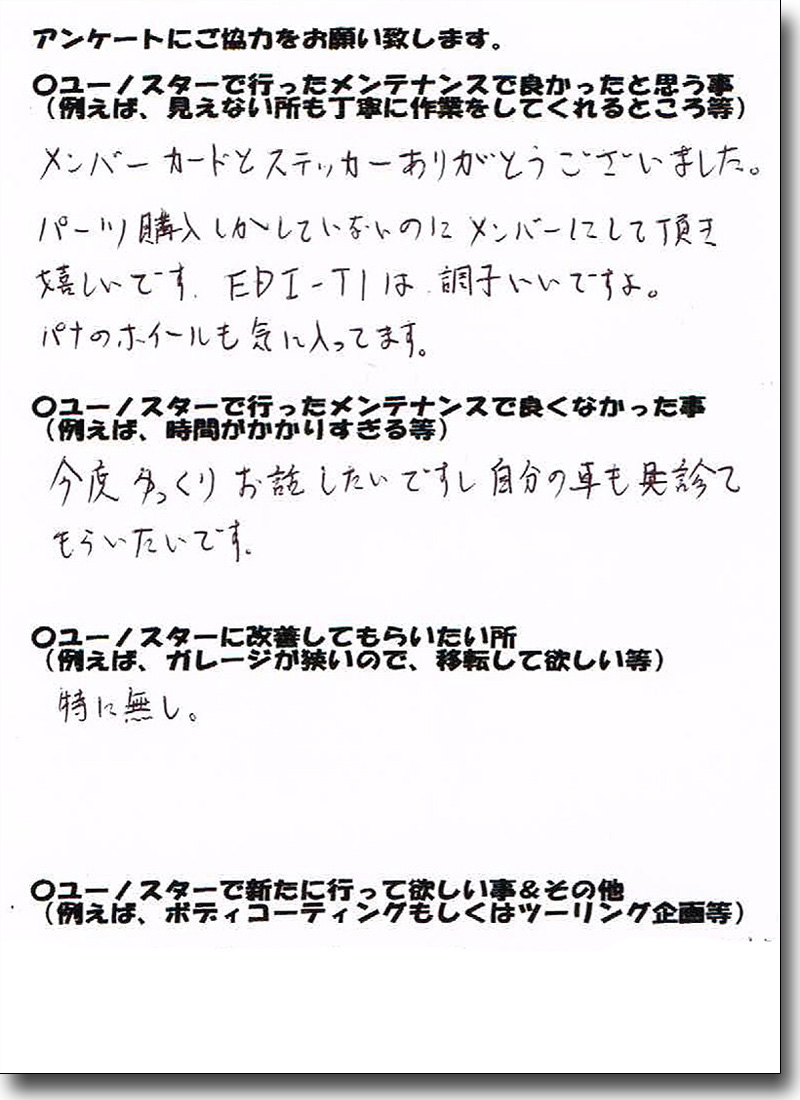 アンケートにご協力をお願い致します。
〇ユーノスターで行ったメンテナンスで良かったと思う事
（例えば、見えない所も丁寧に作業をしてくれるところ等）
メンバーカードとステッカーありがとうございました。
パーツ購入しかしていないのにメンバーにして頂き
嬉しいです。EDI-TIは、調子いいですよ。
パナのホイールも気に入ってます。
〇ユーノスターで行ったメンテナンスで良くなかった事
（例えば、時間がかかりすぎる等）
今度ゆっくりお話したいですし自分の車も見診て
もらいたいです。
〇ユーノスターに改善してもらいたい所
（例えば、ガレージが狭いので、移転して欲しい等）
特に無し。
〇ユーノスターで新たに行って欲しい事＆その他
（例えば、ボディコーティングもしくはツーリング企画等）